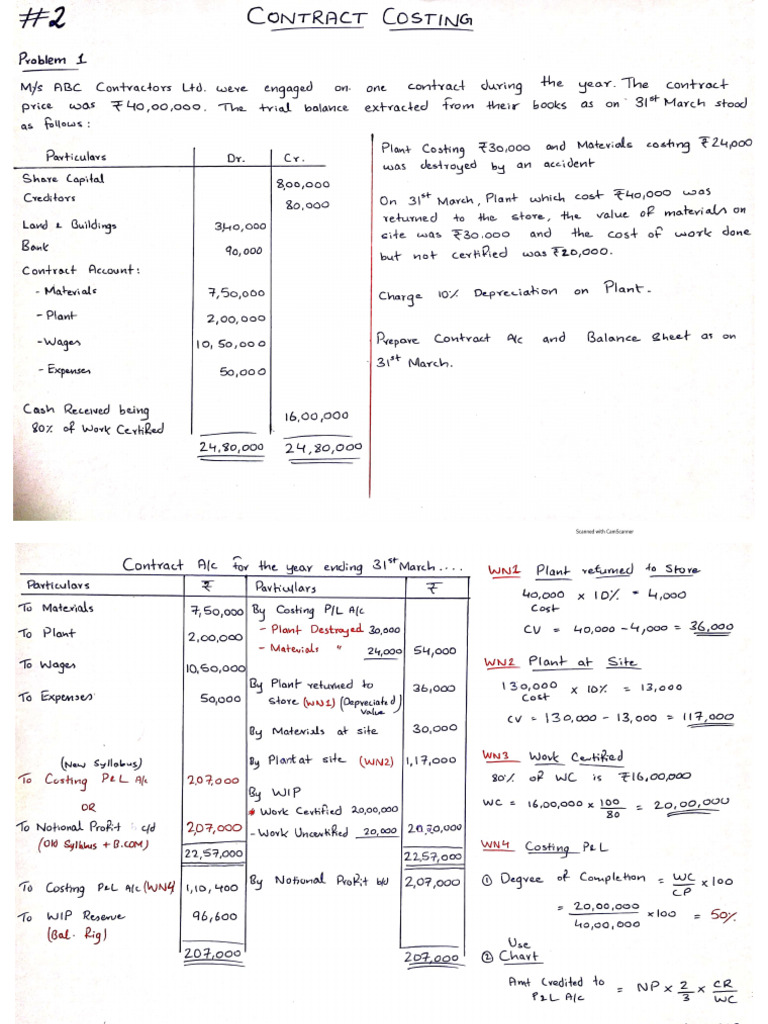 #2
CONTRACT COSTING
Problem 1
M/s ABC Contractors Ltd. were engaged on one contract during the year. The contract
price was ₹40,00,000. The trial balance extracted from their books as on 31st March stood
as follows:
Particulars Dr. Cr.
Share Capital 8,00,000
Creditors 80,000
Land & Buildings 340,000
Bank 90,000
Contract Account:
- Materials 7,50,000
- Plant 2,00,000
- Wages 10,50,000
- Expenses 50,000
Cash Received being 16,00,000
80% of Work Certified
24,80,000 24,80,000
Plant Costing ₹30,000 and Materials costing ₹24,000
was destroyed by an accident
On 31st March, Plant which cost ₹40,000 was
returned to the store, the value of materials on
site was ₹30.000 and the cost of work done
but not certified was ₹20,000.
Charge 10% Depreciation on Plant.
Prepare Contract A/c and Balance Sheet as on
31st March.
Scanned with CamScanner
Contract A/c for the year ending 31st March....
Particulars ₹ Particulars ₹
To Materials 7,50,000 By Costing P/L A/c
- Plant Destroyed 30,000
To Plant 2,00,000
- Materials " 24,000 54,000
To Wages 10,50,000
By Plant returned to 36,000
To Expenses 50,000
Store (WN1) (Depreciated Value)
By Materials at site 30,000
(New Syllabus) By Plant at site (WN2) 1,17,000
To Costing P&L A/c 2,07,000
By WIP
OR
* Work Certified 20,00,000
To Notional Profit c/d 2,07,000 - Work Uncertified 20,000 20,20,000
(Old Syllbus + B.COM)
22,57,000 22,57,000
To Costing P&L A/c (WN4) 1,10,400 By Notional Profit b/d 2,07,000
To WIP Reserve 96,600
(Bal. Fig)
207,000 207,000
WN1 Plant returned to Store
40,000 x 10% = 4,000
Cost
CV = 40,000 - 4,000 = 36,000
WN2 Plant at Site
130,000 x 10% = 13,000
Cost
CV = 130,000 - 13,000 = 117,000
WN3 Work Certified
80% of WC is ₹16,00,000
WC = 16,00,000 x 100/80 = 20,00,000
WN4 Costing P&L
① Degree of Completion = WC/CP x 100
= 20,00,000/40,00,000 x 100 = 50%
Use
② Chart
Amt Credited to P&L A/c = NP x 2/3 x CR/WC